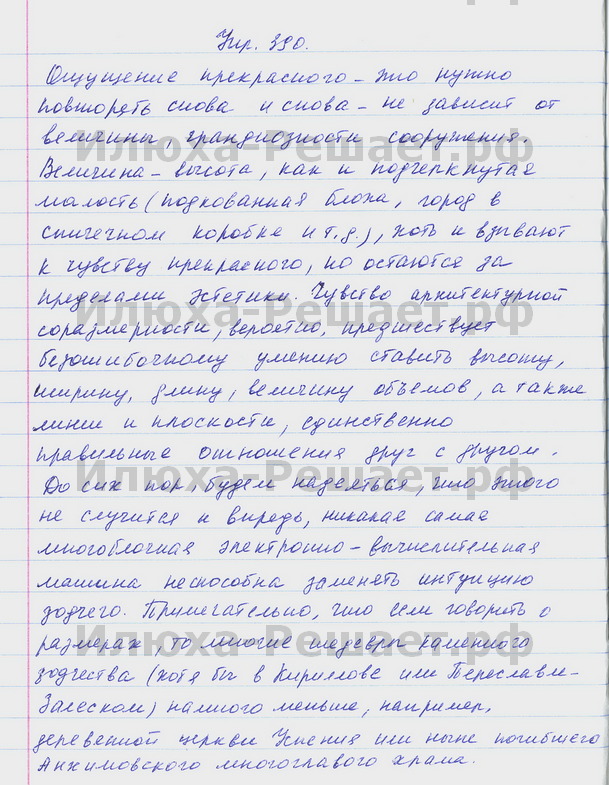 Упр. 390.
Ощущение прекрасного – это нужно
повторять снова и снова – не зависит от
величины, грандиозности сооружения.
Илюха-Решает.рф
Величина – высота, как и подчеркнутая
малость (подкованная блоха, город в
спичечном коробке и т.д.), хоть и взывают
к чувству прекрасного, но остаются за
пределами эстетики. Чувство архитектурной
Илюха-Решает.рф
соразмерности, вероятно, предшествует
безошибочному умению ставить высоту,
ширину, длину, величину объемов, а также
линии и плоскости, единственно
правильные отношения друг с другом.
Илюха-Решает.рф
До сих пор, будем надеяться, что этого
не случится и впредь, никакая самая
многоблочная электронно-вычислительная
машина неспособна заменять интуицию
зодчего. Примечательно, что если говорить о
размерах, то многие шедевры каменного
Илюха-Решает.рф
зодчества (хотя бы в Кириллове или Переславле-
Залеском) намного меньше, например,
деревенной церкви Успения или ныне погибшего
Анхимовского многоглавого храма.